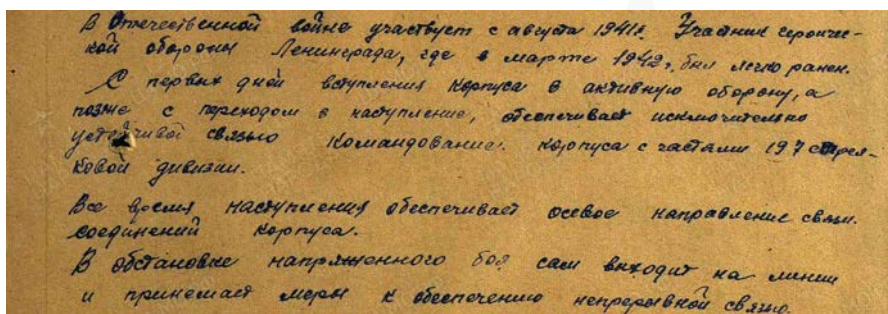 В Отечественной войне участвует с августа 1941г. Участник героичес-
кой обороны Ленинграда, где в марте 1942г. был легко ранен.
С первых дней вступления Корпуса в активную оборону, а
позже с переходом в наступление, обеспечивает исключительно
устойчивой связью Командование. Корпуса с частями 197 стрел-
ковой дивизии.
Все время наступления обеспечивает осевое направление связи.
соединений Корпуса.
В обстановке напряженного боя сам выходит на линии
и принемает меры к обеспечению непрерывной связью.